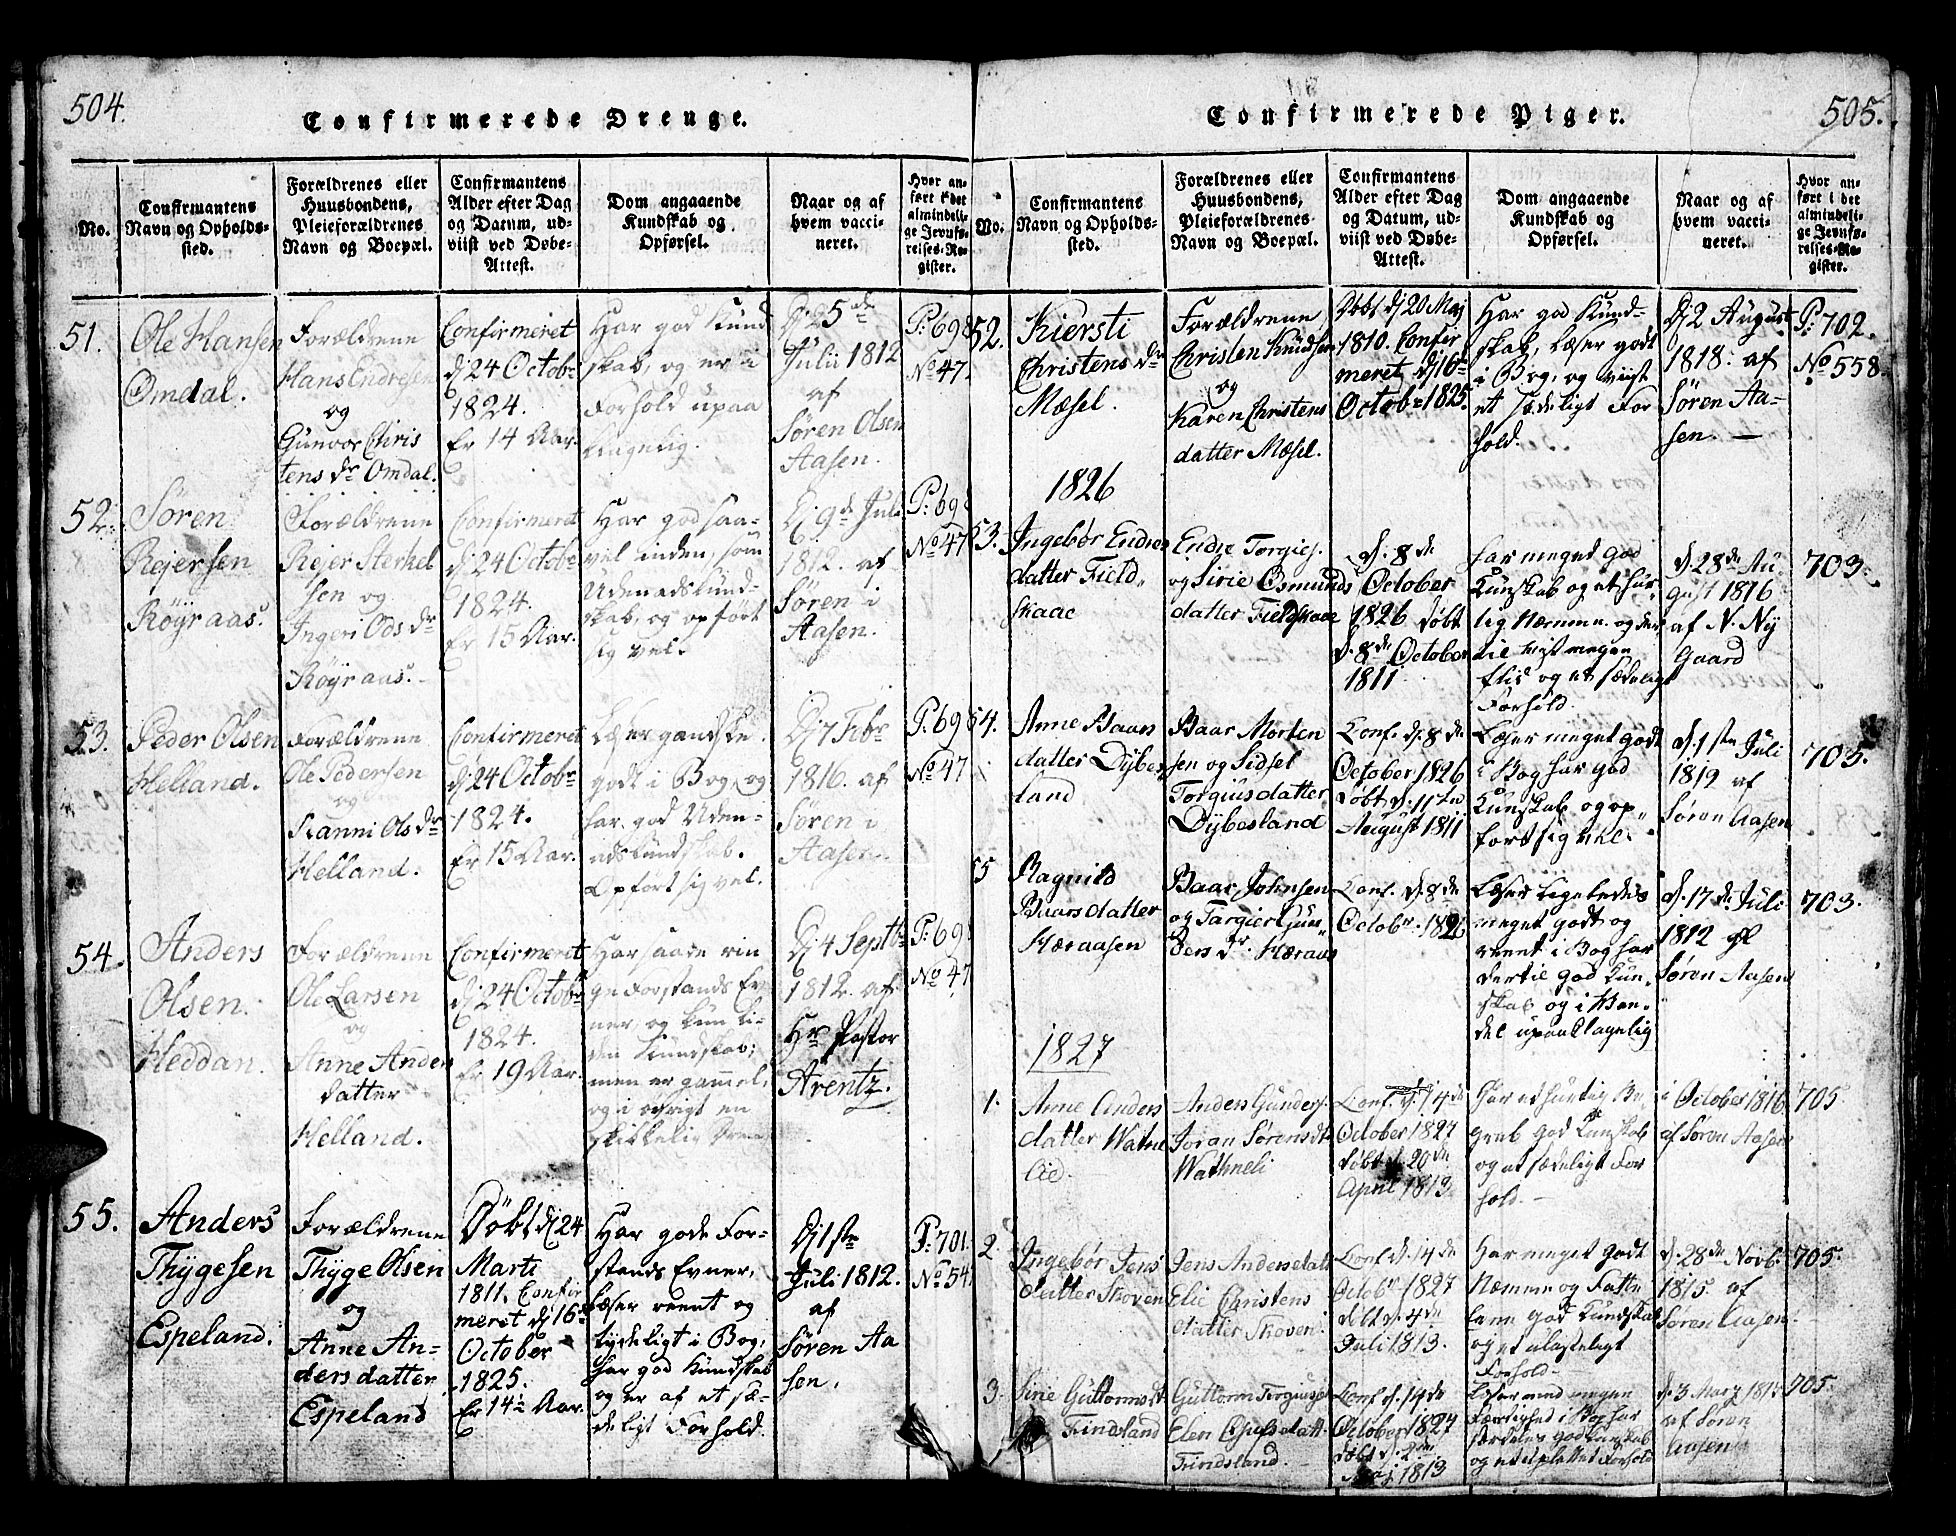 504.
Confirmerede Drenge.
No.
Confirmantens
Navn og Opholds-
sted.
Forældrenes eller
Huusbondens,
Pleieforældrenes
Navn og Boepæl.
Confirmantens
Alder efter Dag
og Datum, ud-
viist ved Døbe-
Attest.
Dom angaaende
Kundskab og
Opførsel.
Naar og af
hvem vacci-
neret.
Hvor an-
ført i det
almindeli-
ge Jevnfø-
relses-Re-
gister.
51.
Ole Hansen
Omdal.
Forældrene
Hans Endresen
og
Gunvor Chris
tens dr Omdal.
Confirmeret
dj 24 Octobr
1824.
Er 14 Aar.
Har god Kund
skab, og er i
Forhold upaa
klagelig.
Dj 25de
Julii 1812
af
Søren Olsen
Aasen.
P: 698
No 47.
52.
Søren
Rejersen
Röyraas.
Forældrene
Rejer Sterkel
sen og
Ingeri Ods dr
Röyraas.
Confirmeret
dj 24 Octobr
1824.
Er 15 Aar.
Har god saa-
vel inden, som
Udenadskund-
skab, og opført
sig vel.
Dj 9de Juli
1812. af
Søren i
Aasen.
P: 698
No 47
53.
Peder Olsen
Helland.
Forældrene
Ole Pedersen
og
Ranni Ols dr
Helland.
Confirmeret
dj 24 Octobr
1824.
Er 15 Aar.
Læser gandske
godt i Bog, og
har god Uden-
adskundskab.
Opført sig vel.
Dj 7 Febr
1816. af
Søren i
Aasen.
P: 698
No 47
54.
Anders
Olsen
Heddan.
Forældrene
Ole Larsen
og
Anne Anders
datter
Helland.
Confirmeret
dj 24 Octobr
1824.
Er 19 Aar.
Har saare rin
ge Forstands Ev
ner, og kun li-
den Kundskab;
men er gammel,
og i øvrigt en
skikkelig
Dj 4 Septbr
1812. af
Hr Pastor
Arentz.
P: 698
No 47
55.
Anders
Thygesen
Espeland.
Forældrene
Thyge Olsen
og
Anne An-
dersdatter
Espeland
Döbt dj 24
Marti
1811. Confir
meret dj 16de
October
1825.
Er 14½ Aar.
Har gode For-
stands Evner,
læser reent og
tydeligt i Bog,
har god Kundskab
og er af et sæ-
deligt Forhold.
Dj 1ste
Juli 1812.
af
Søren Aa
sen.
P: 701.
No 54
505.
Confirmerede Piger.
No.
Confirmantens
Navn og Opholds-
sted.
Forældrenes eller
Huusbondens,
Pleieforældrenes
Navn og Boepæl.
Confirmantens
Alder efter Dag
og Datum, ud-
viist ved Døbe-
Attest.
Dom angaaende
Kundskab og
Opførsel.
Naar og af
hvem vacci-
neret.
Hvor an-
ført i det
almindeli-
ge Jevnfø-
relses-Re-
gister.
52.
Kiersti
Christens dr
Mæsel.
Forældrene
Christen Knudsen
og
Karen Christens
datter Mæsel.
Döbt dj 20 Maj
1810. Confir
meret dj 16de
Octobr 1825.
Har god Kund-
skab, læser godt
i Bog, og viist
et sædeligt For
hold.
Dj 2 August
1818. af
Søren Aa-
sen.
P: 702.
No 558.
1826
53.
Ingebør Endres
datter Field-
skaae
Endre Torgies.
og Sirie Osmunds
datter Fieldskaae
d. 8de
October
1826 døbt
d. 8de October
1811
har meget god
Kunskab og et hur-
tig Nemme og der
til vist megen
flid og et sædeligt
Forhold.
d. 28de Au-
gust 1816
af N. Ny
Gaard
703.
54.
Anne Baars
datter Dybes
land
Baar Morten
sen og Sidsel
Torguusdatter
Dybesland
Conf. d. 8de
October 1826
døbt d. 11te
August 1811
Læser meget godt
i Bog har god
Kunskab og op-
ført sig vel.
d. 1ste Juli
1819 af
Søren Aasen
705.
55
Ragnild
Baarsdatter
Kæraasen
Baar Johnsen
og Targier Gun-
ders dr. Kæraas
Conf. d. 8de
Octobr. 1826
Læser ligeledes
meget godt og
reent i Bog har
dertil god Kun-
skab og i Van-
del upaaklagelig
d. 17de Juli
1812 af
Søren Aasen
703.
1827
1.
Anne Anders
datter Wathne
lie.
Anders Gunders.
Joran Sørens dtr
Wathneli
Conf. d. 14de
October 1827
døbt d. 20de
April 1813.
Har et hurtig Be-
greb god Kunskab
og et sædeligt For
hold.
i October 1816
af Søren Aasen
705.
2.
Ingebør Jens
datter Skoven
Jens Anders
Elie Christens
datter Skoven.
Conf d. 14de
Octobr 1827
døbt d. 4de
Juli 1813.
Har meget godt
Nemme og Fatte
evne god Kundskab
og et ulasteligt
Forhold.
d. 28de Novb.
1815. af
Søren Aasen.
705.
3.
Sine Guttorms dtr
Trindsland
Guttorm Torguus
Elen
Trindsland.
Conf. d. 14de
October 1827
døbt d. 2den
Maj 1813
Læser med megen
Færdighed i Bog har
særdeles god Kunskab
og et uplettet Forhold
d. 3 Marz 181
af Søren
Aasen
705.